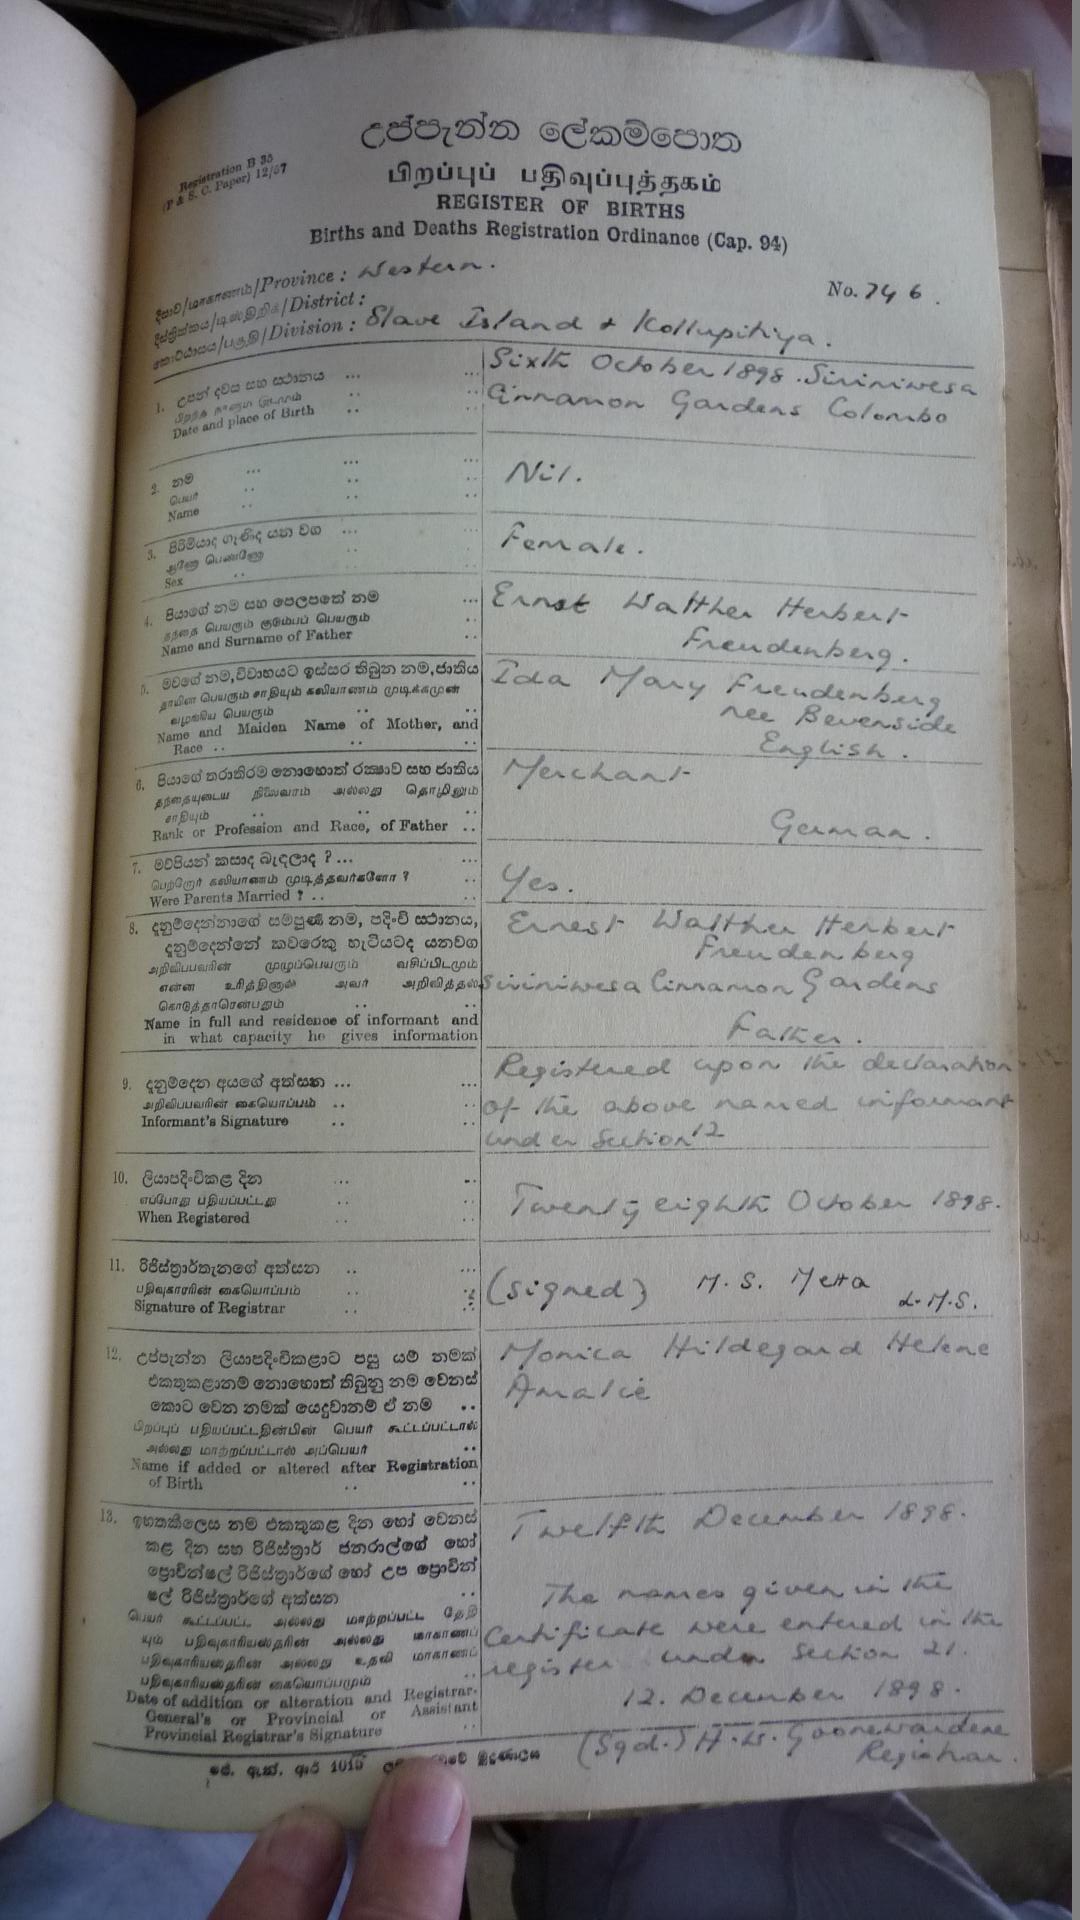 උප්පැන්න ලේකම්පොත
பிறப்புப் பதிவுப்புத்தகம்
REGISTER OF BIRTHS
Births and Deaths Registration Ordinance (Cap. 94)
Registration B 35
(P & S. C. Paper) 12/57
දිසාව/மாகாணம்/Province : Western.
No. 746.
දිස්ත්‍රික්කය/டிஸ்திரிக்/District :
කොට්ඨාසය/பகுதி/Division : Slave Island & Kollupitiya.
1. උපන් දවස සහ ස්ථානය
Date and place of Birth
Sixth October 1898. Siriniwesa
Cinnamon Gardens Colombo
2. නම
பெயர்
Name
Nil.
3. පිරිමියාද ගැණිද යන වග
ஆணோ பெண்ணோ
Sex
Female.
4. පියාගේ නම සහ පෙලපතේ නම
தந்தை பெயரும் குடும்பப் பெயரும்
Name and Surname of Father
Ernest Walther Herbert
Freudenberg.
5. මවගේ නම, විවාහයට ඉස්සර තිබුන නම, ජාතිය
தாயின் பெயரும் சாதியும் கலியாணம் முடிக்கமுன்
வழங்கிய பெயரும்
Name and Maiden Name of Mother, and
Race
Ida Mary Freudenberg
nee Bevenside
English.
6. පියාගේ තරාතිරම නොහොත් රක්ෂාව සහ ජාතිය
தந்தையுடைய நிலைவரம் அல்லது தொழிலும்
சாதியும்
Rank or Profession and Race, of Father
Merchant
German.
7. මව්පියන් කසාද බැඳලාද ?
பெற்றோர் கலியாணம் முடித்தவர்களோ ?
Were Parents Married ?
Yes.
8. දැනුම්දෙන්නාගේ සම්පූර්ණ නම, පදිංචි ස්ථානය,
දැනුම්දෙන්නේ කවරෙකු හැටියටද යනවග
அறிவிப்பவரின் முழுப்பெயரும் வசிப்பிடமும்
என்ன உரித்தினால் அவர் அறிவித்தல்
கொடுத்தாரென்பதும்
Name in full and residence of informant and
in what capacity he gives information
Ernest Walther Herbert
Freudenberg
Siriniwesa Cinnamon Gardens
Father.
9. දැනුම්දෙන අයගේ අත්සන
அறிவிப்பவரின் கையொப்பம்
Informant's Signature
Registered upon the declaration
of the above named informant
under Section 12
10. ලියාපදිංචිකළ දින
எப்போது பதியப்பட்டது
When Registered
Twenty eighth October 1898.
11. රිජිස්ත්‍රාර්තැනගේ අත්සන
பதிவுகாரரின் கையொப்பம்
Signature of Registrar
(Signed) M. S. Metta
L.M.S.
12. උප්පැන්න ලියාපදිංචිකළාට පසු යම් නමක්
එකතුකළානම් නොහොත් තිබුනු නම වෙනස්
කොට වෙන නමක් යෙදුවානම් ඒ නම
பிறப்புப் பதியப்பட்டதின்பின் பெயர் கூட்டப்பட்டால்
அல்லது மாற்றப்பட்டால் அப்பெயர்
Name if added or altered after Registration
of Birth
Monica Hildegard Helene
Amalie
13. ඉහතකීලෙස නම එකතුකළ දින හෝ වෙනස්
කළ දින සහ රිජිස්ත්‍රාර් ජනරාල්ගේ හෝ
ප්‍රොවින්ෂල් රිජිස්ත්‍රාර්ගේ හෝ උප ප්‍රොවින්
ෂල් රිජිස්ත්‍රාර්ගේ අත්සන
பெயர் கூட்டப்பட்ட அல்லது மாற்றப்பட்ட தேதி
யும் பதிவுகாரியஸ்தரின் அல்லது மாகாணப்
பதிவுகாரியஸ்தரின் அல்லது உதவி மாகாணப்
பதிவுகாரியஸ்தரின் கையொப்பமும்
Date of addition or alteration and Registrar-
General's or Provincial or Assistant
Provincial Registrar's Signature
Twelfth December 1898.
The names given in the
Certificate were entered in the
register under Section 21.
12. December 1898.
(Sgd.) H. W. Goonewardene
Registrar.